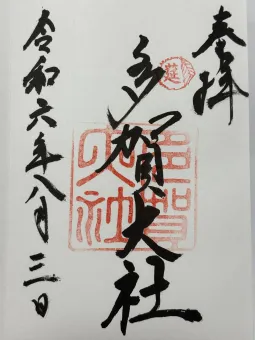 奉拝
多賀大社
令和六年八月三日
多賀大社